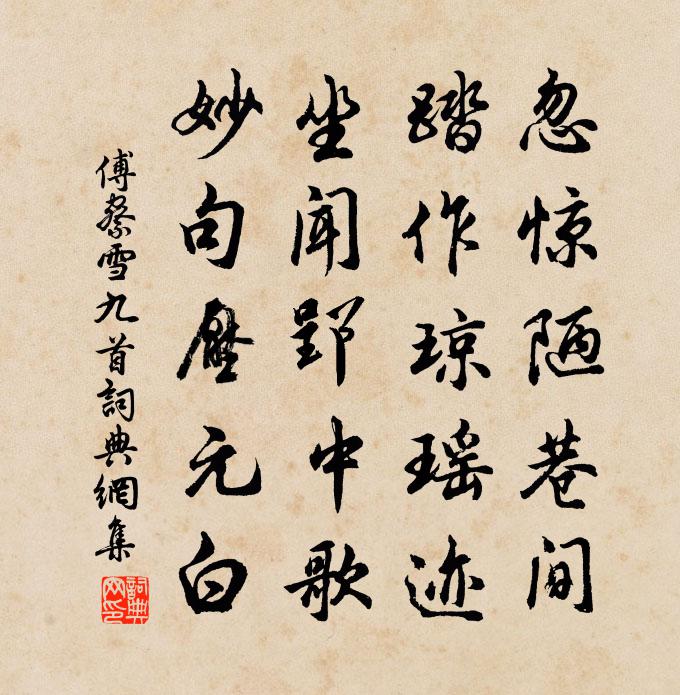 忽惊陋巷间
踏作琼瑶迹
坐闻郢中歌
妙句壓元白
傅察雪九首詞典網集
詞典網印